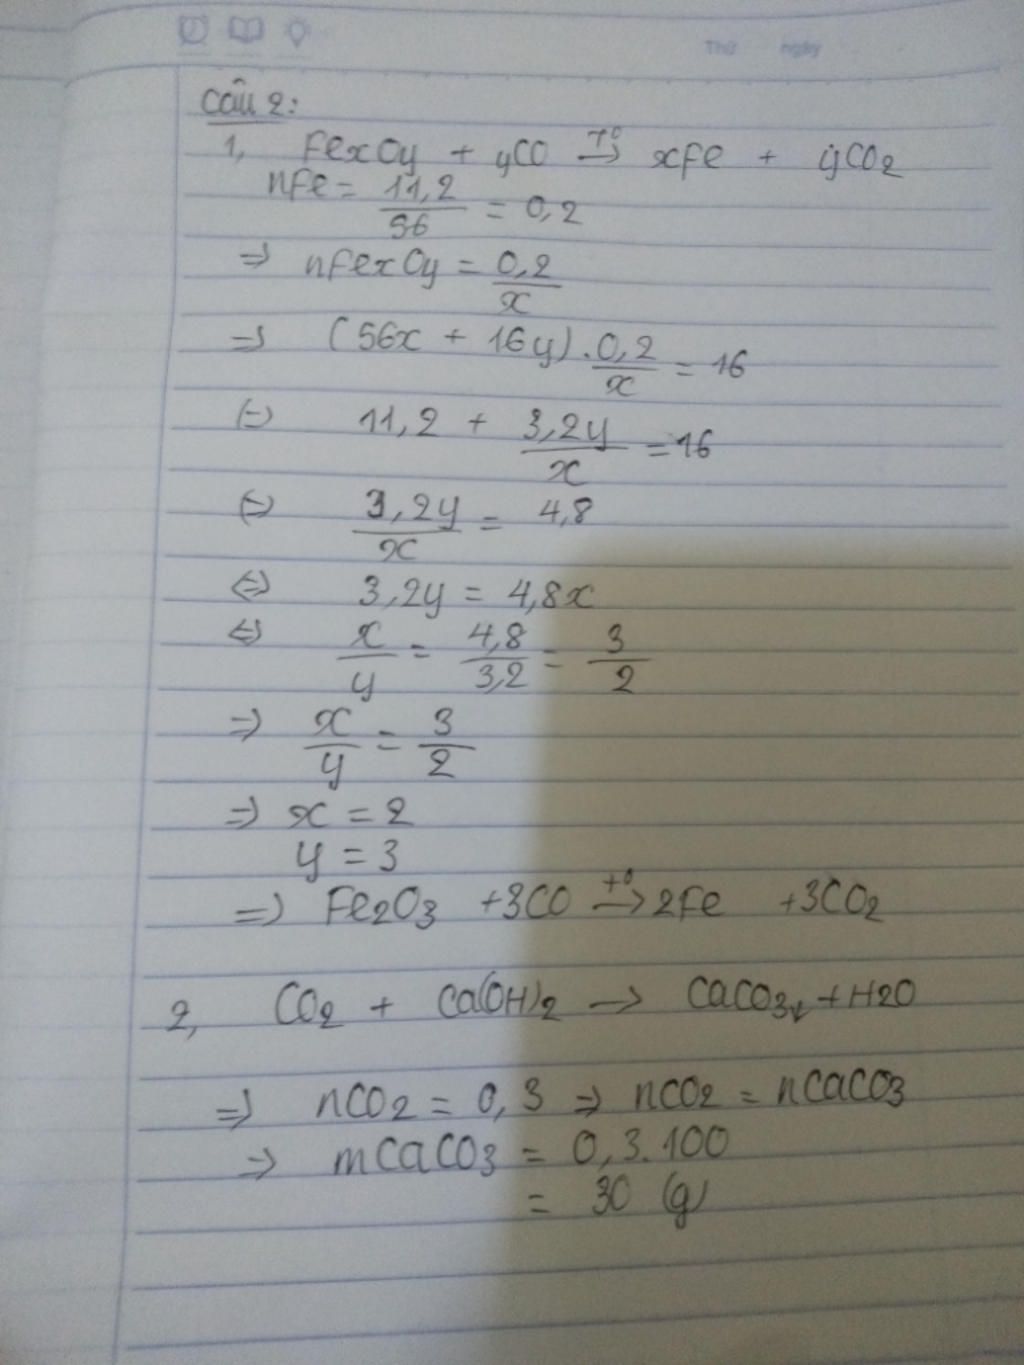 Thứ ngày
Câu 2:
1, FexOy + yCO -T°-> xFe + yCO2
nFe = 11,2/56 = 0,2
=> nFexOy = 0,2/x
=> (56x + 16y) . 0,2/x = 16
(=) 11,2 + 3,2y/x = 16
(=) 3,2y/x = 4,8
<=> 3,2y = 4,8x
<=> x/y = 4,8/3,2 = 3/2
=> x/y = 3/2
=> x = 2
y = 3
=> Fe2O3 + 3CO -t°-> 2Fe + 3CO2
2, CO2 + Ca(OH)2 -> CaCO3↓ + H2O
=> nCO2 = 0,3 => nCO2 = nCaCO3
=> mCaCO3 = 0,3.100
= 30 (g)